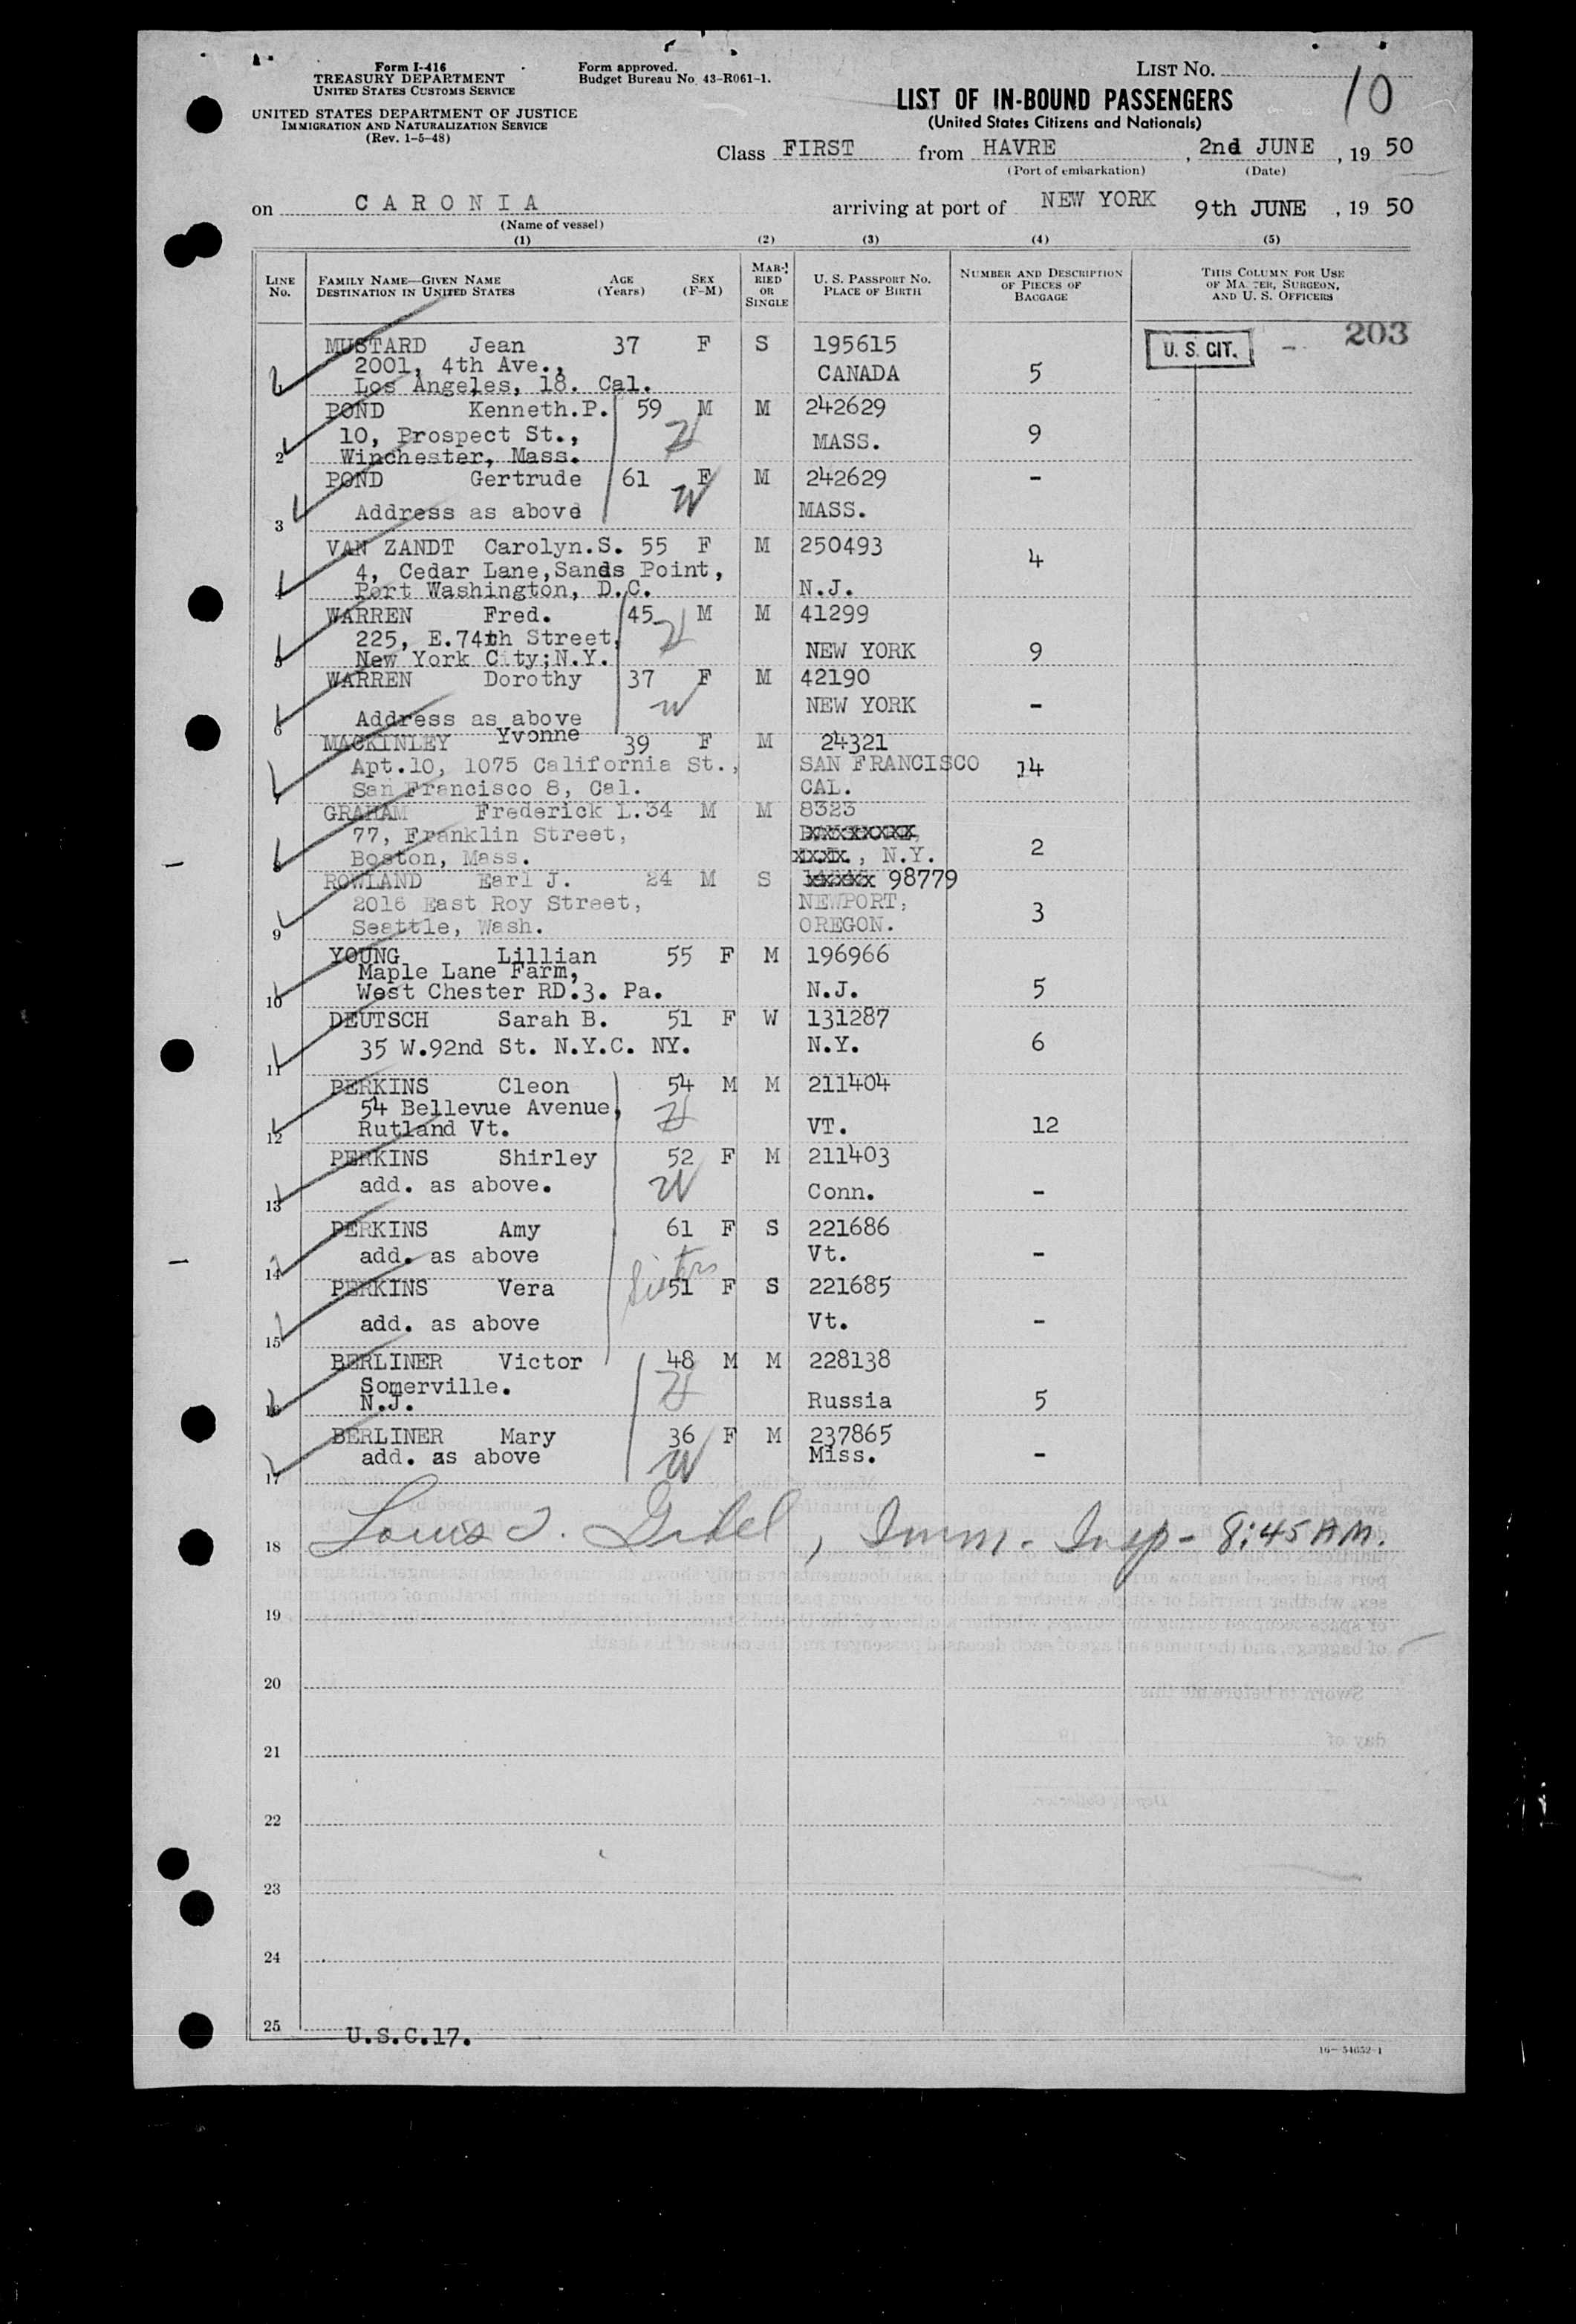 Form I-416
TREASURY DEPARTMENT
UNITED STATES CUSTOMS SERVICE
UNITED STATES DEPARTMENT OF JUSTICE
IMMIGRATION AND NATURALIZATION SERVICE
(Rev. 1-5-48)
Form approved.
Budget Bureau No. 43-R061-1.
LIST NO. 10
LIST OF IN-BOUND PASSENGERS
(United States Citizens and Nationals)
Class FIRST from HAVRE, 2nd JUNE, 19 50
(Port of embarkation) (Date)
on CARONIA arriving at port of NEW YORK 9th JUNE, 19 50
(Name of vessel)
(1) (2) (3) (4) (5)
LINE NO.
FAMILY NAME—GIVEN NAME
DESTINATION IN UNITED STATES
AGE (Years)
SEX (F-M)
MARRIED OR SINGLE
U. S. PASSPORT NO.
PLACE OF BIRTH
NUMBER AND DESCRIPTION
OF PIECES OF
BAGGAGE
THIS COLUMN FOR USE
OF MASTER, SURGEON,
AND U. S. OFFICERS
203
U. S. CIT. -
MUSTARD Jean 37 F S 195615
2001, 4th Ave., CANADA 5
Los Angeles, 18. Cal.
POND Kenneth.P. 59 M M 242629
10, Prospect St., H MASS. 9
2 Winchester, Mass.
POND Gertrude 61 F M 242629 -
W
3 Address as above MASS.
VAN ZANDT Carolyn.S. 55 F M 250493
4, Cedar Lane,Sands Point, 4
Port Washington, D.C. N.J.
WARREN Fred. 45 M M 41299
225, E.74th Street, H
5 New York City;N.Y. NEW YORK 9
WARREN Dorothy 37 F M 42190
W NEW YORK -
6 Address as above
MACKINLEY Yvonne 39 F M 24321
Apt.10, 1075 California St., SAN FRANCISCO 14
San Francisco 8, Cal. CAL.
GRAHAM Frederick L.34 M M 8323
77, Franklin Street,
Boston, Mass. , N.Y. 2
ROWLAND Earl J. 24 M S 98779
2016 East Roy Street, NEWPORT, 3
9 Seattle, Wash. OREGON.
YOUNG Lillian 55 F M 196966
Maple Lane Farm,
10 West Chester RD.3. Pa. N.J. 5
DEUTSCH Sarah B. 51 F W 131287
35 W.92nd St. N.Y.C. NY. N.Y. 6
11
PERKINS Cleon 54 M M 211404
54 Bellevue Avenue, H
12 Rutland Vt. VT. 12
PERKINS Shirley 52 F M 211403
add. as above. W Conn. -
13
PERKINS Amy 61 F S 221686
14 add. as above Vt. -
Sisters
PERKINS Vera 51 F S 221685
15 add. as above Vt. -
BERLINER Victor 48 M M 228138
Somerville. H
16 N.J. Russia 5
BERLINER Mary 36 F M 237865
17 add. as above W Miss. -
18 Louis J. , Imm. Insp- 8:45 AM.
19
20
21
22
23
24
25
U.S.C.17.
16-54652-1